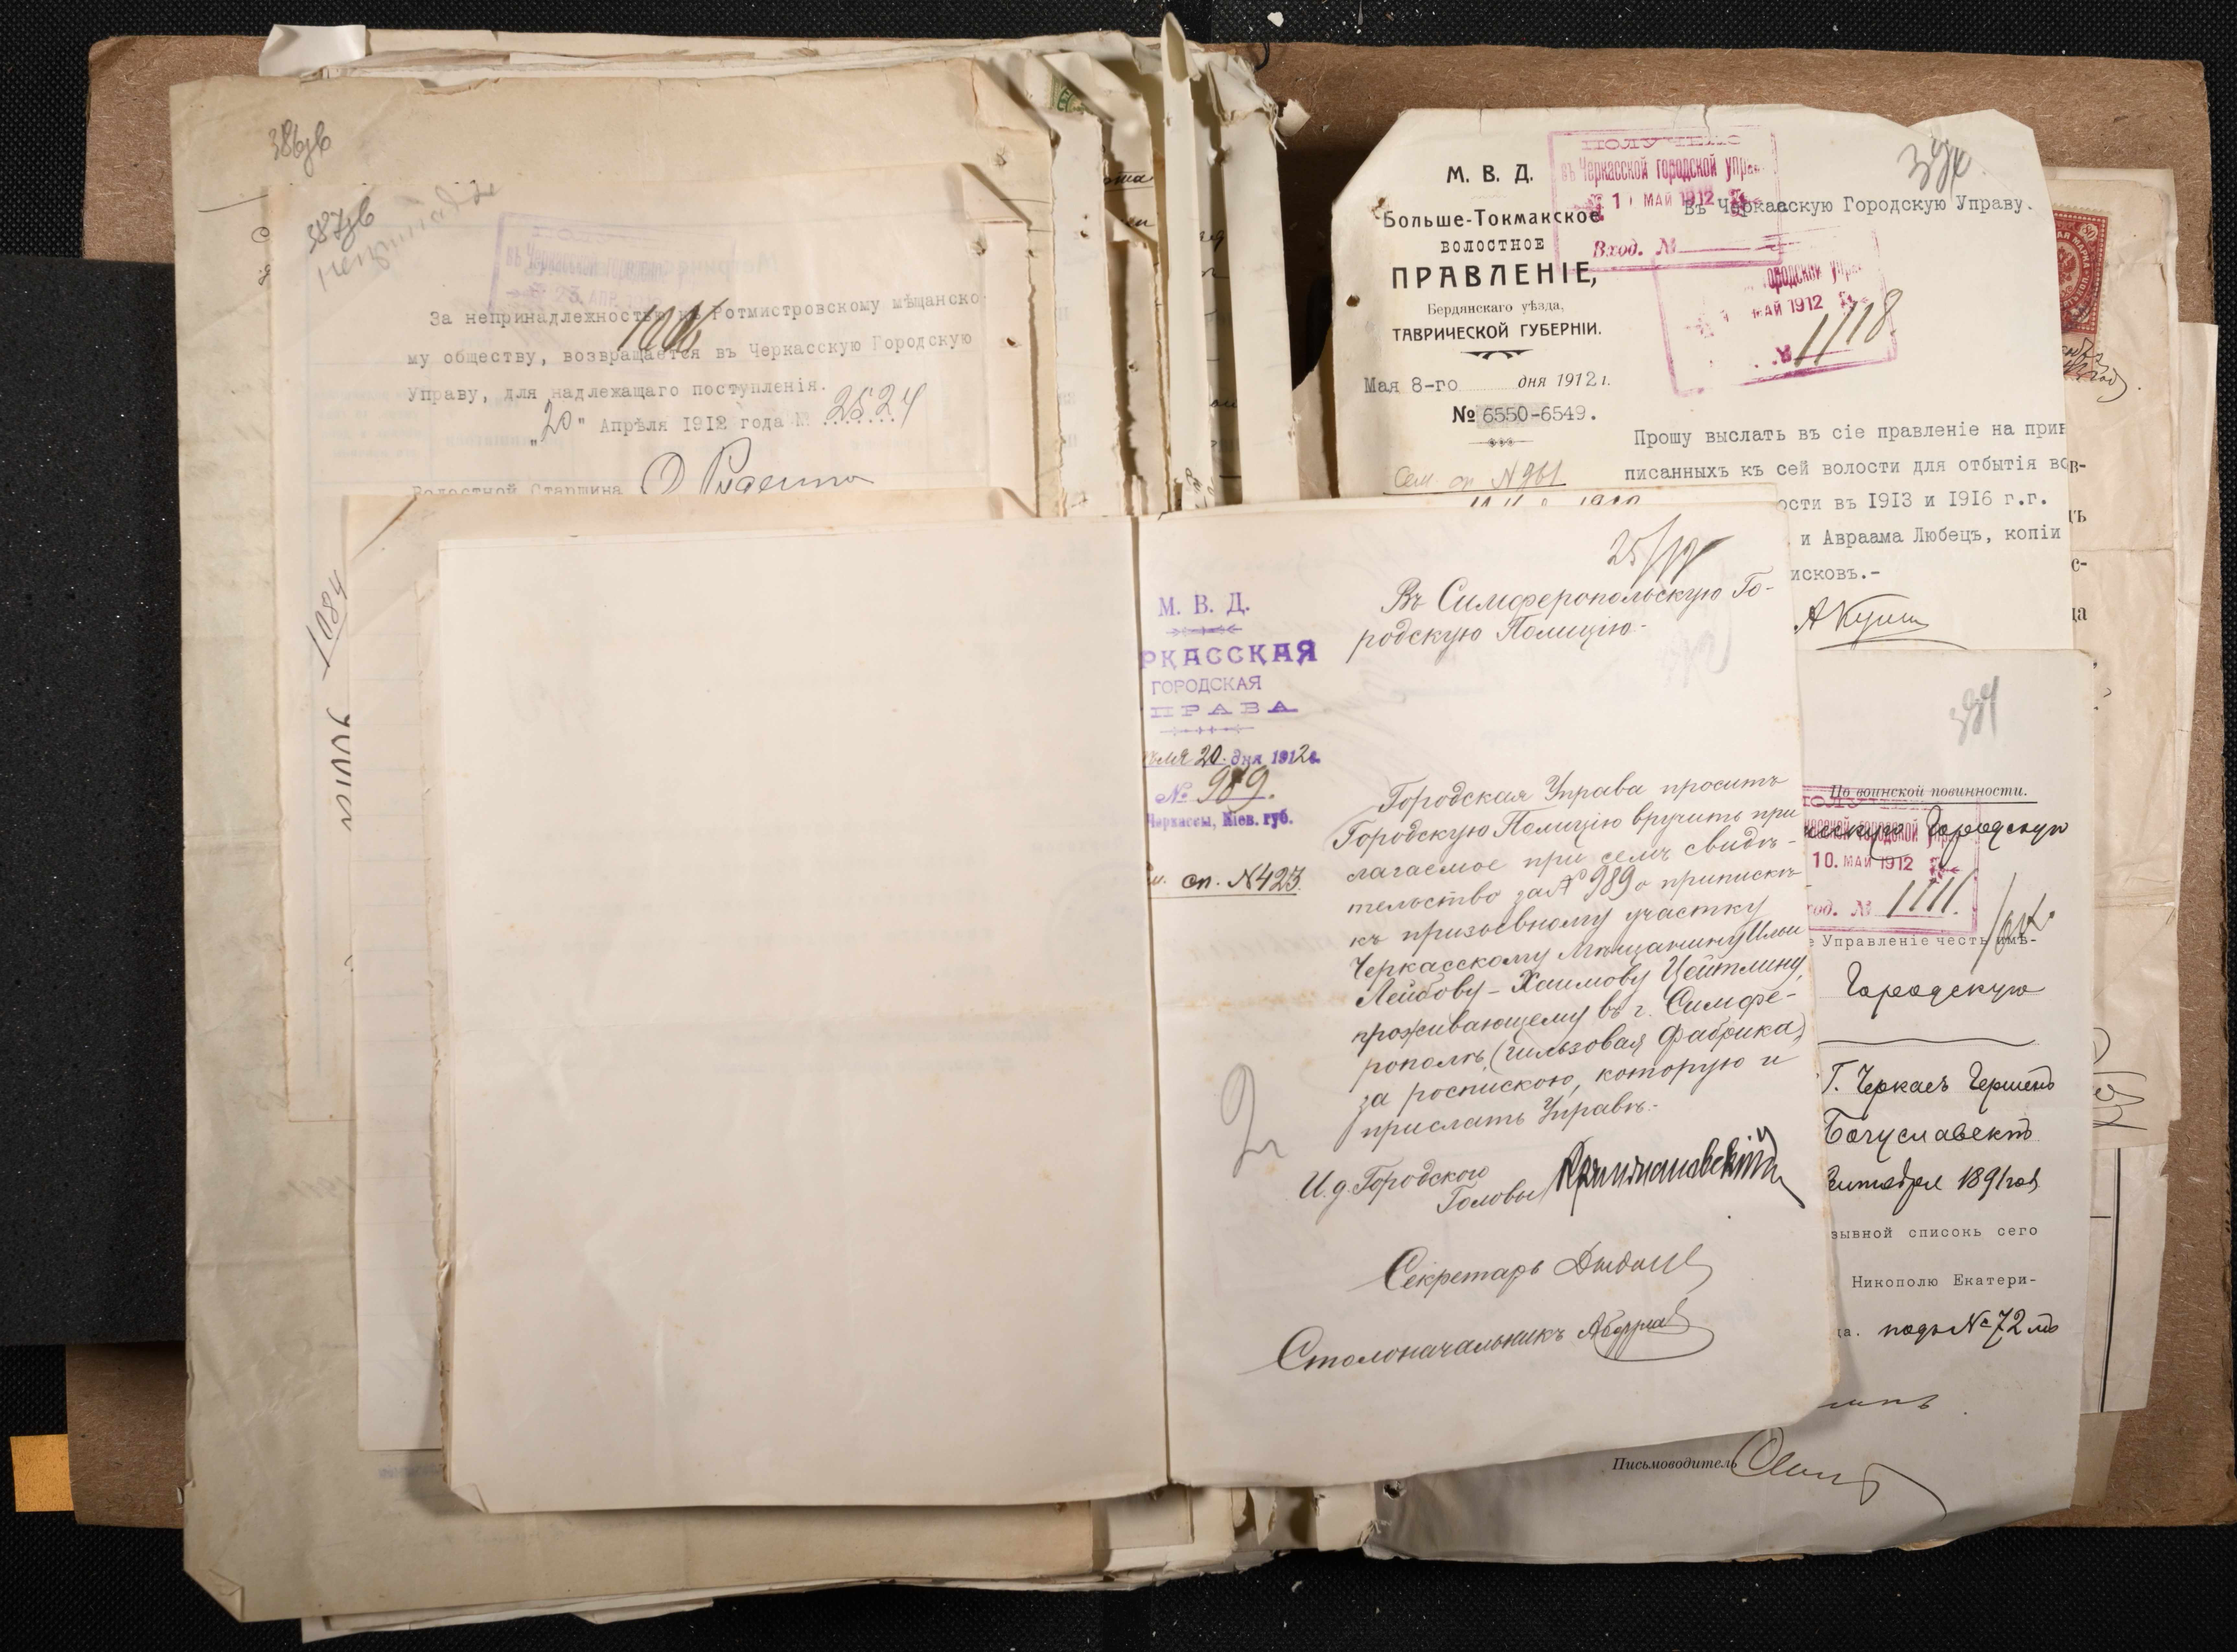 386
387
За непринадлежностью къ Ротмистровскому мѣщанско-
му обществу, возвращается въ Черкасскую Городскую
Управу, для надлежащаго поступленія.
"20" Апрѣля 1912 года № 2524
Волостной Старшина
1084
М. В. Д.
Больше-Токмакское
ВОЛОСТНОЕ
ПРАВЛЕНІЕ,
Бердянскаго уѣзда,
ТАВРИЧЕСКОЙ ГУБЕРНІИ.
Мая 8-го дня 1912 г.
№ 6550-6549.
ПОЛУЧЕНО
въ Черкасской городской упра
1 МАЙ 1912
Вход. №
городской упра
МАЙ 1912
1118
Въ Черкасскую Городскую Управу.
Прошу выслать въ сіе правленіе на при
писанныхъ къ сей волости для отбытія во
ости въ 1913 и 1916 г.г.
и Авраама Любецъ, копіи
исковъ.-
М. В. Д.
РКАССКАЯ
ГОРОДСКАЯ
ПРАВА
еля 20 дня 1912 г.
№ 989.
Черкассы, Кіев. губ.
сп. №423.
Въ Симферопольскую Го-
родскую Полицію.
Городская Управа проситъ
Городскую Полицію вручить при
лагаемое при семъ свидѣ-
тельство за № 989 о припискѣ
къ призывному участку
Черкасскому Мѣщанину Ильи
Лейбову-Хаимову Цейтлину,
проживающему въ г. Симфе-
рополѣ, (гильзовая Фабрика)
за роспискою, которую и
прислать Управѣ.-
И.д. Городского
Головы
Секретарь
Столоначальникъ
По воинской повинности.
Городскую
10. МАЙ 1912
од. № 1111.
е Управленіе честь имѣ-
Городскую
Г. Черкасъ
1891 год
зывной списокъ сего
Никополю Екатери-
подъ № 72
Письмоводитель